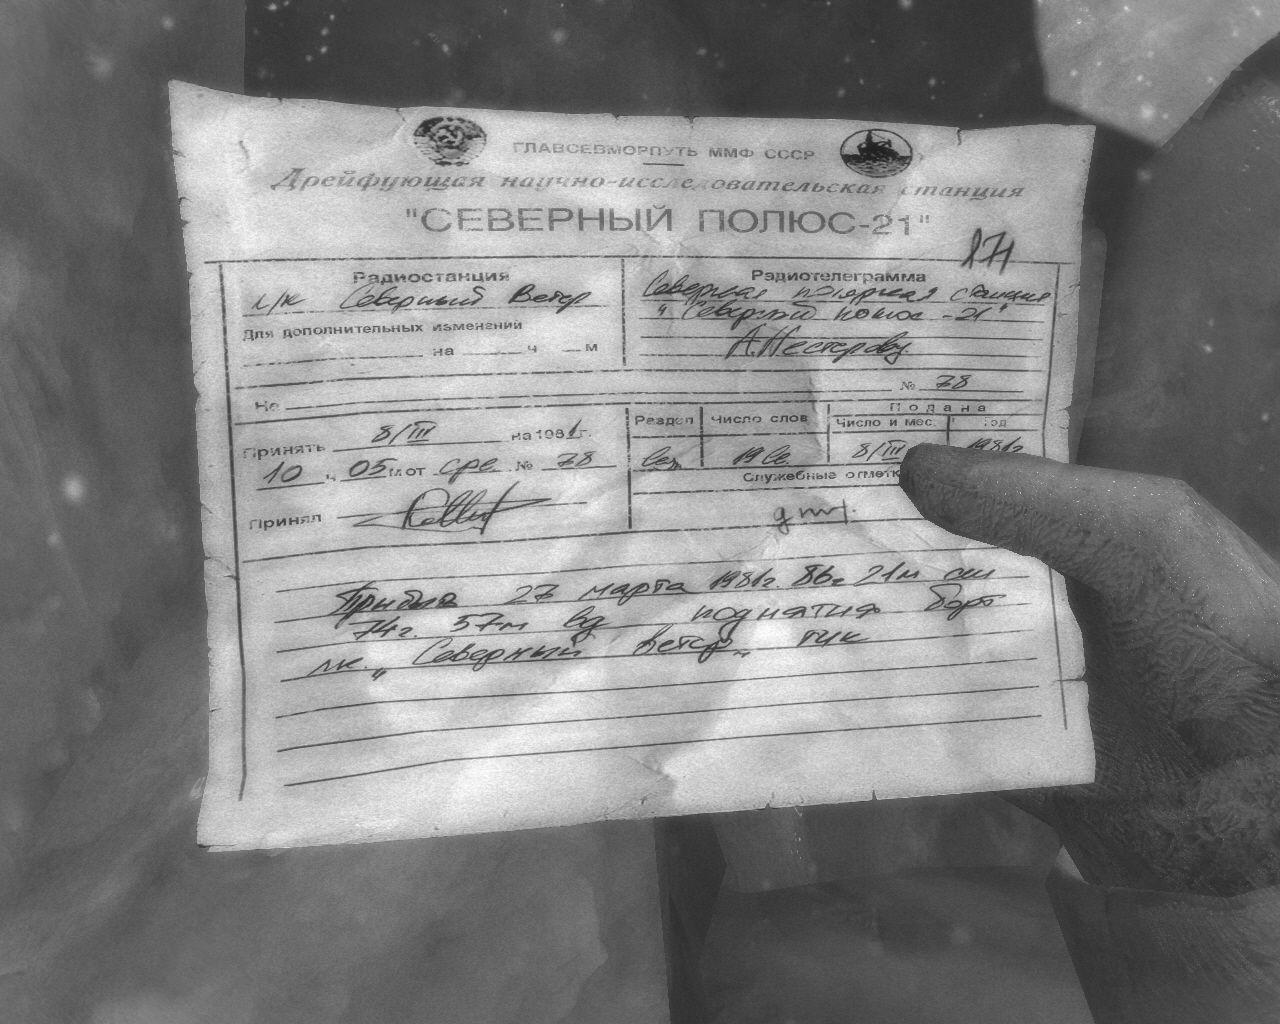 ГЛАВСЕВМОРПУТЬ ММФ СССР
Дрейфующая научно-исследовательская станция
"СЕВЕРНЫЙ ПОЛЮС-21"
Радиостанция
л/к Северный Ветер
Для дополнительных изменений
на ч м
Радиотелеграмма
Северная полярная станция
"Северный полюс -21"
А.Нестерову
№ 78
Но
Принять 8/III на 1981г.
10 ч 05 м от сре. № 78
Принял
Раздел Число слов Подана
Число и мес. год
19 8/III 1981г
Служебные отметк
Прибыл 27 марта 1981г. 86г 21м сш
74г. 57м вд поднятия борт
лк. „Северный ветер„ тчк